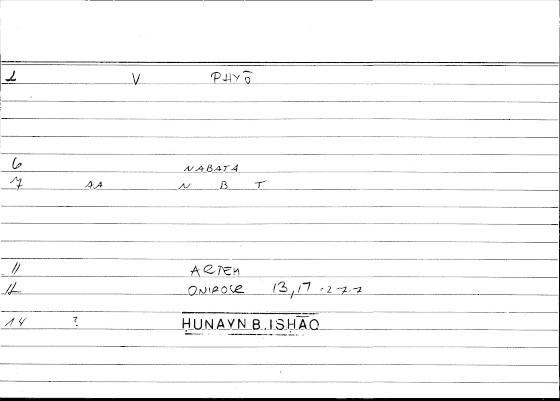 1 V PHYŌ
6 NABATA
7 AA N B T
11 ARTEM
12 ONIROCR 13,17 -2-7-7
14 ? HUNAYN B. ISHĀQ